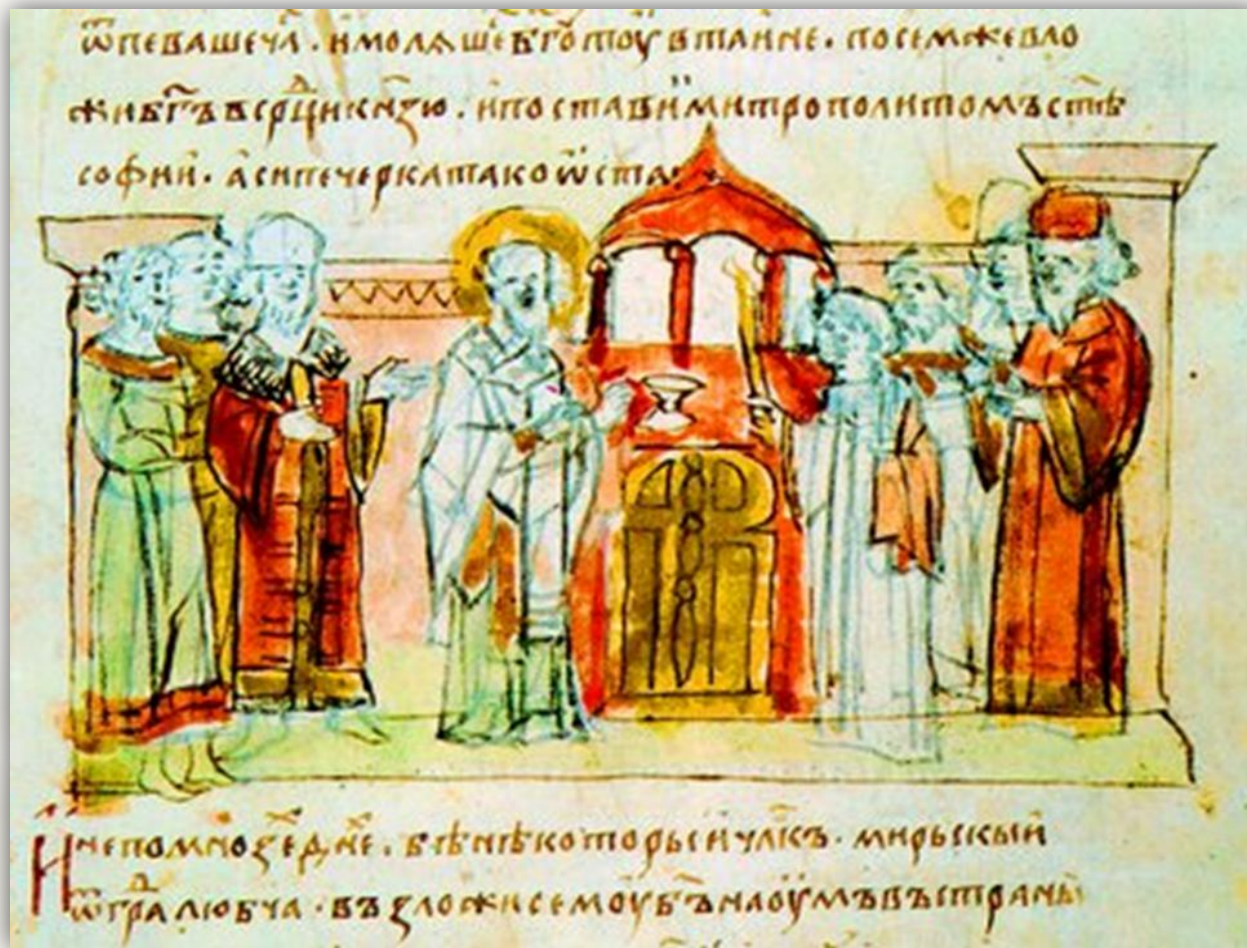 ѿпеваше часꙑ . и молѧше б҃гоу в таине . посемже вло
жи б҃гъ въ ср҃дци кнѧзю . и постави и митрополитомъ ст҃ѣ
софии . а си печерка тако ѡста
И не по мнозѣ д҃не . бѣ нѣкоторꙑи ч҃лкъ . мирьскꙑи
ѿ града любча . възложи семоу б҃ъ на оумъ въ странꙑ